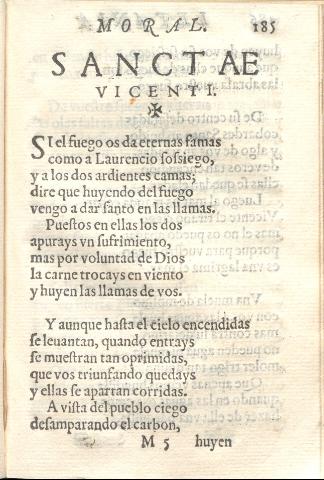 MORAL. 185
SANCTAE
VICENTI.
✠
SI el fuego os da eternas famas
como a Laurencio sossiego,
y a los dos ardientes camas;
dire que huyendo del fuego
vengo a dar santo en las llamas.
Puestos en ellas los dos
apurays vn sufrimiento,
mas por voluntad de Dios
la carne trocays en viento
y huyen las llamas de vos.
Y aunque hasta el cielo encendidas
se leuantan, quando entrays
se muestran tan oprimidas,
que vos triunfando quedays
y ellas se apartan corridas.
A vista del pueblo ciego
desamparando el carbon,
M 5 huyen